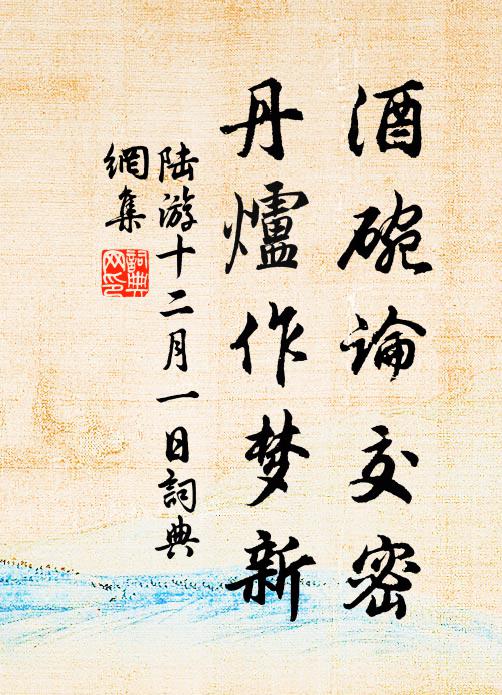 酒碗論交密
丹爐作梦新
陆游十二月一日詞典
網集
詞典
网印